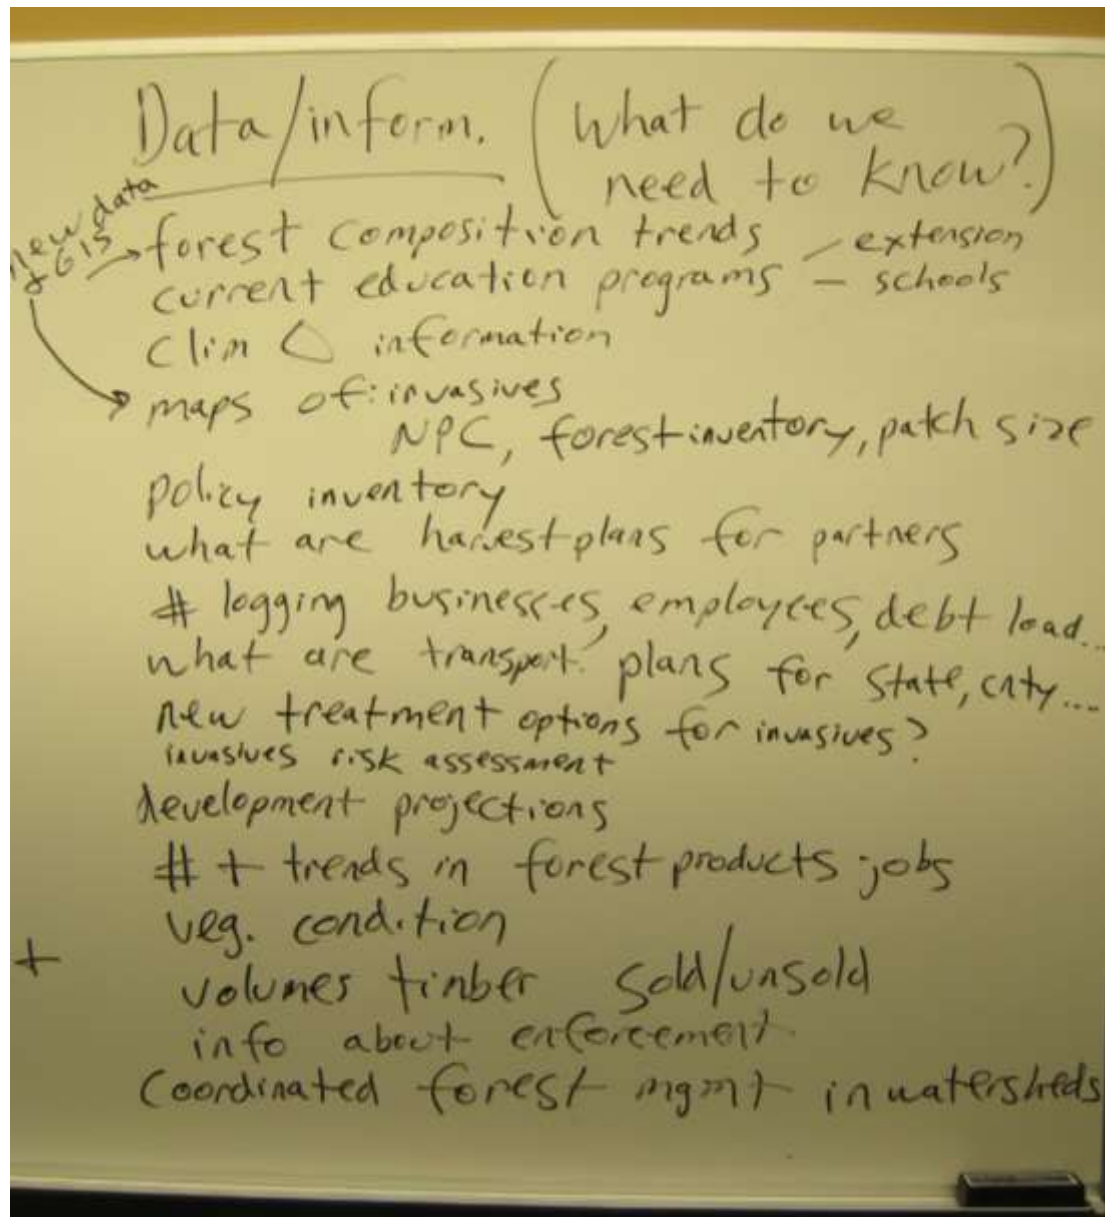 Data/inform. (What do we
need to know?)
new data
& GIS
forest composition trends - extension
current education programs - schools
Clim △ information
maps of: invasives
NPC, forest inventory, patch size
policy inventory
what are harvest plans for partners
# logging businesses, employees, debt load...
what are transport. plans for state, cnty...
new treatment options for invasives?
invasives risk assessment
development projections
# + trends in forest products jobs
veg. condition
+
volumes timber sold/unsold
info about enforcement
Coordinated forest mgmt in watersheds